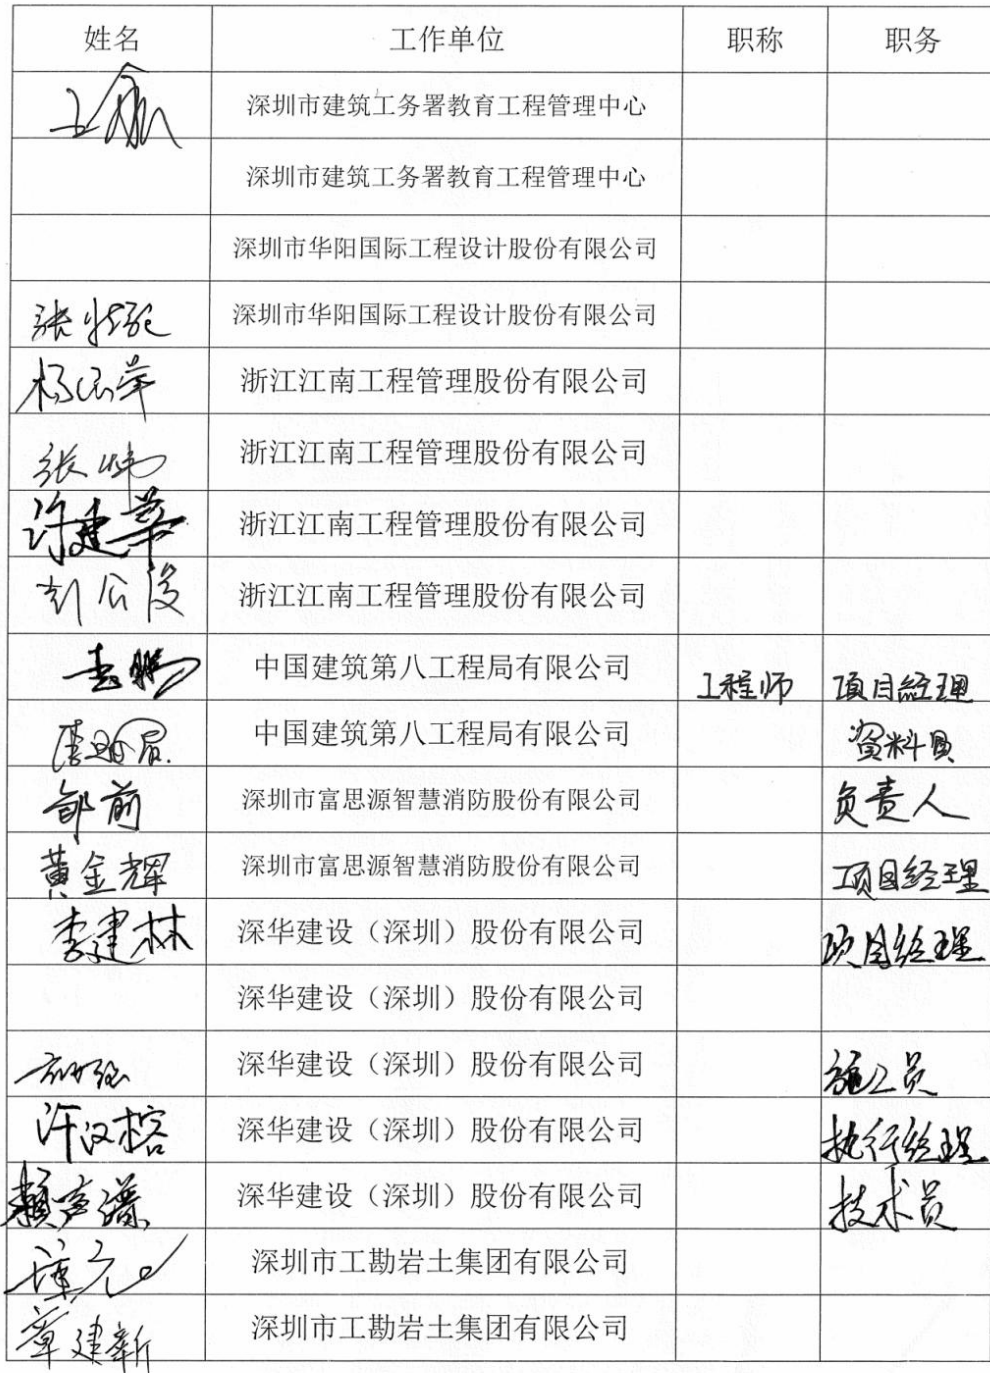 姓名 工作单位 职称 职务
深圳市建筑工务署教育工程管理中心
深圳市建筑工务署教育工程管理中心
深圳市华阳国际工程设计股份有限公司
张 深圳市华阳国际工程设计股份有限公司
杨 浙江江南工程管理股份有限公司
张炜 浙江江南工程管理股份有限公司
许建华 浙江江南工程管理股份有限公司
浙江江南工程管理股份有限公司
中国建筑第八工程局有限公司 工程师 项目经理
中国建筑第八工程局有限公司 资料员
邹前 深圳市富思源智慧消防股份有限公司 负责人
黄金辉 深圳市富思源智慧消防股份有限公司 项目经理
李建林 深华建设（深圳）股份有限公司 项目经理
深华建设（深圳）股份有限公司
深华建设（深圳）股份有限公司 施工员
许汉榕 深华建设（深圳）股份有限公司 执行经理
赖声 深华建设（深圳）股份有限公司 技术员
深圳市工勘岩土集团有限公司
章建新 深圳市工勘岩土集团有限公司